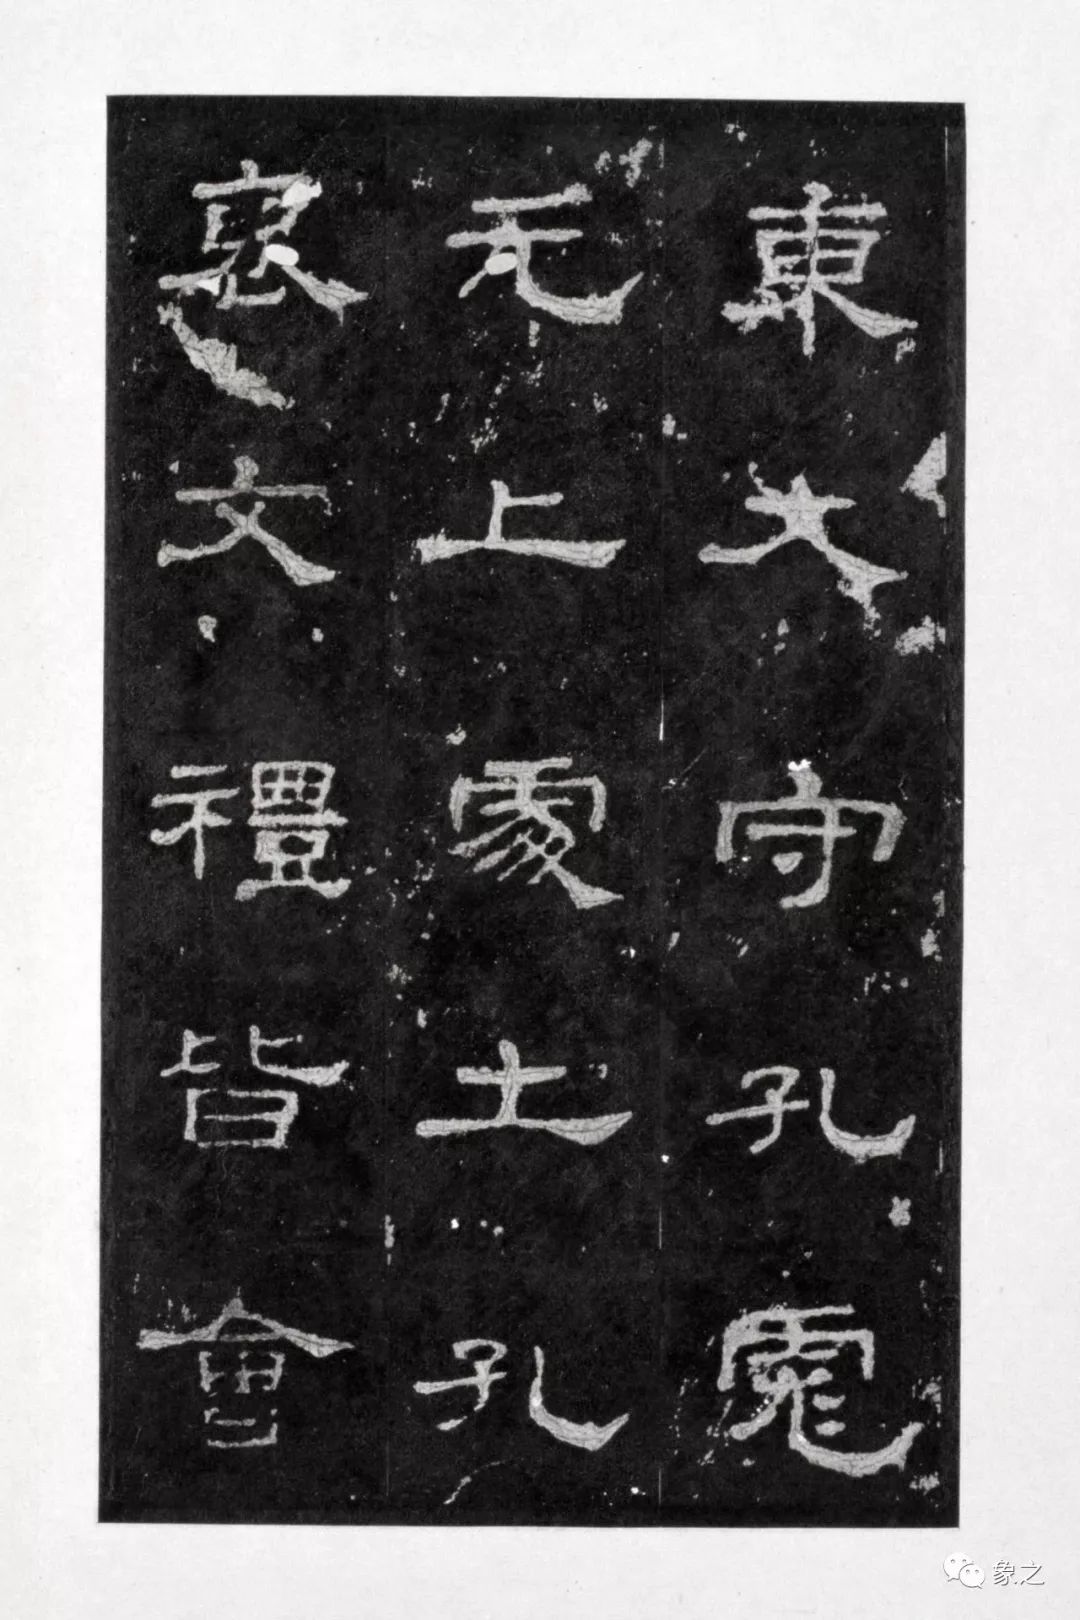 東大守孔彪
元上處士孔
褒文禮皆會
象之